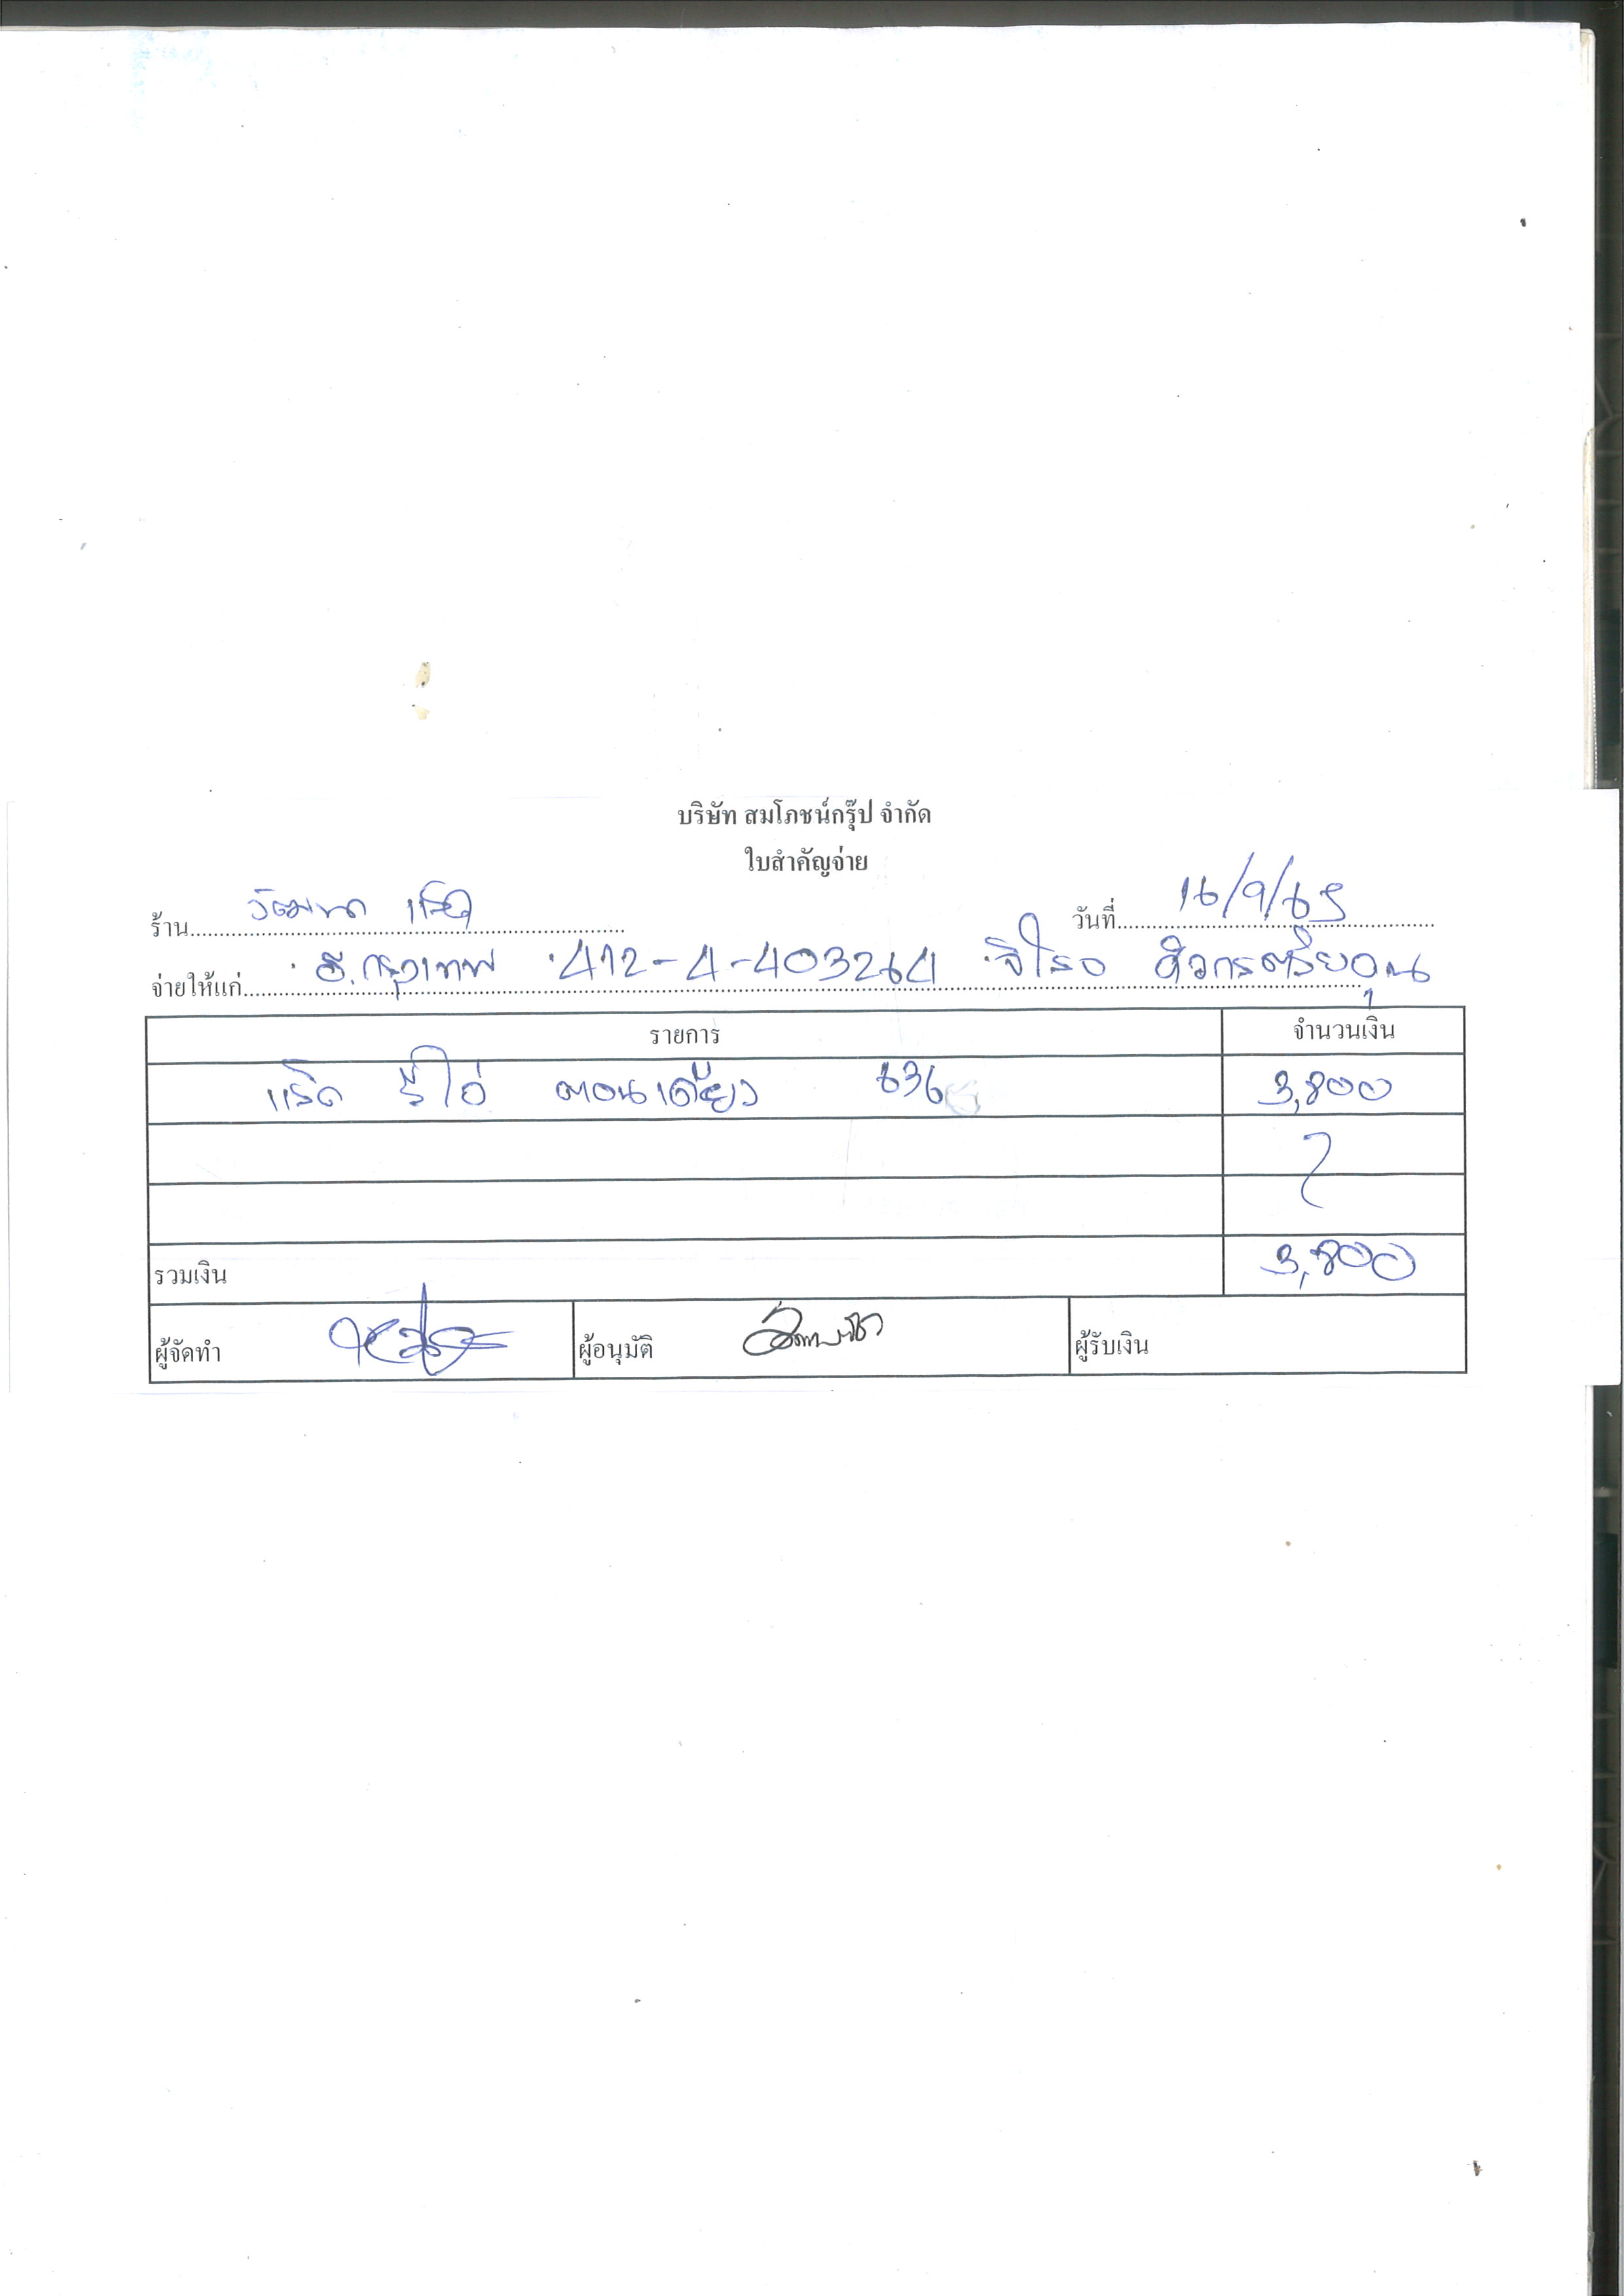 บริษัท สมโภชน์กรุ๊ป จำกัด
ใบสำคัญจ่าย
ร้าน วัฒนา แร็ค วันที่ 16/9/65
จ่ายให้แก่ ธ.กรุงเทพ 412-4-403264 วิโรจ
รายการ จำนวนเงิน
แร็ค รีโว่ ตอนเดียว 636 3,800
รวมเงิน 3,800
ผู้จัดทำ ผู้อนุมัติ ผู้รับเงิน